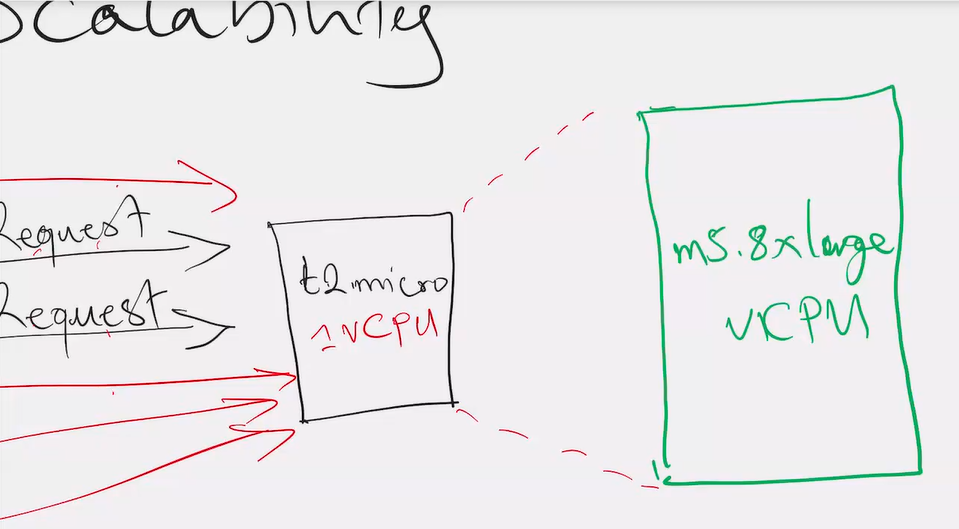 Scalability
Request
Request
t2.micro
1 vCPU
m5.8xlarge
vCPU